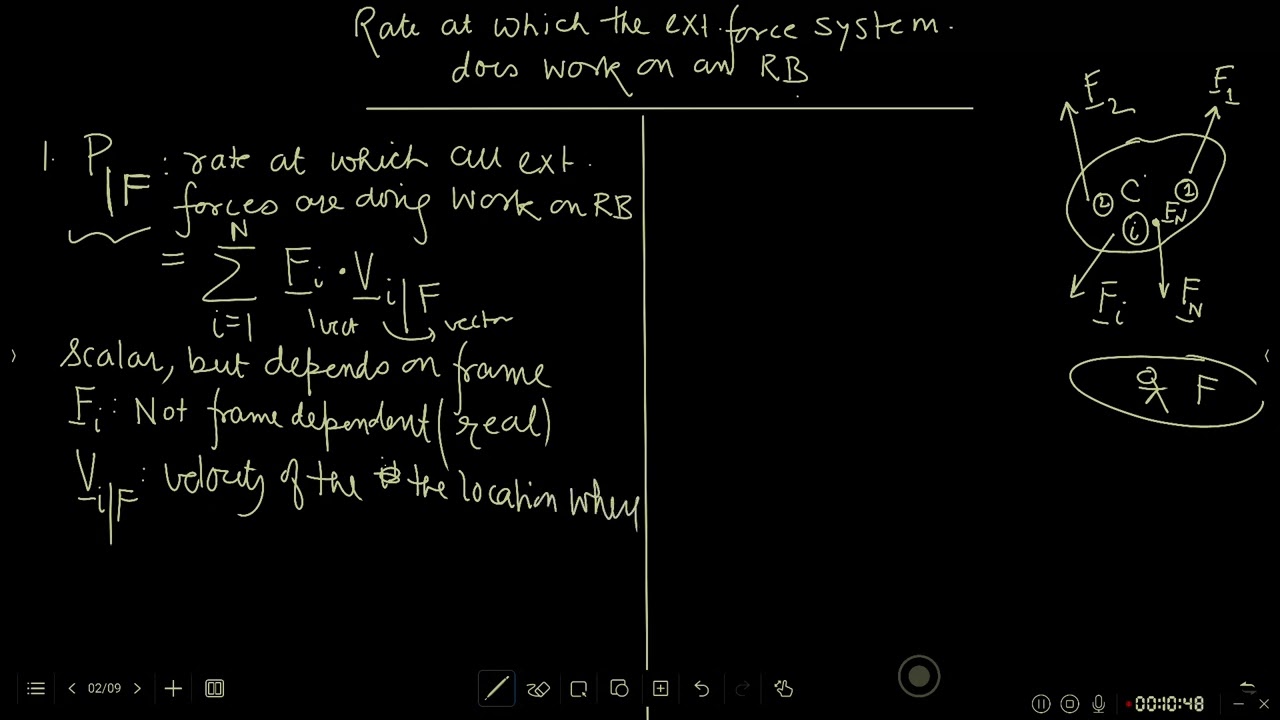 Rate at which the ext. force system.
does work on an RB
1. P|F : rate at which all ext.
forces are doing work on RB
= N Σ i=1 F_i · V_i|F
vect vector
scalar, but depends on frame
F_i : Not frame dependent (real)
V_i|F : velocity of the the location where
F_2 F_1
C
2 1
i F_N
F_i F_N
F
02/09
00:10:48